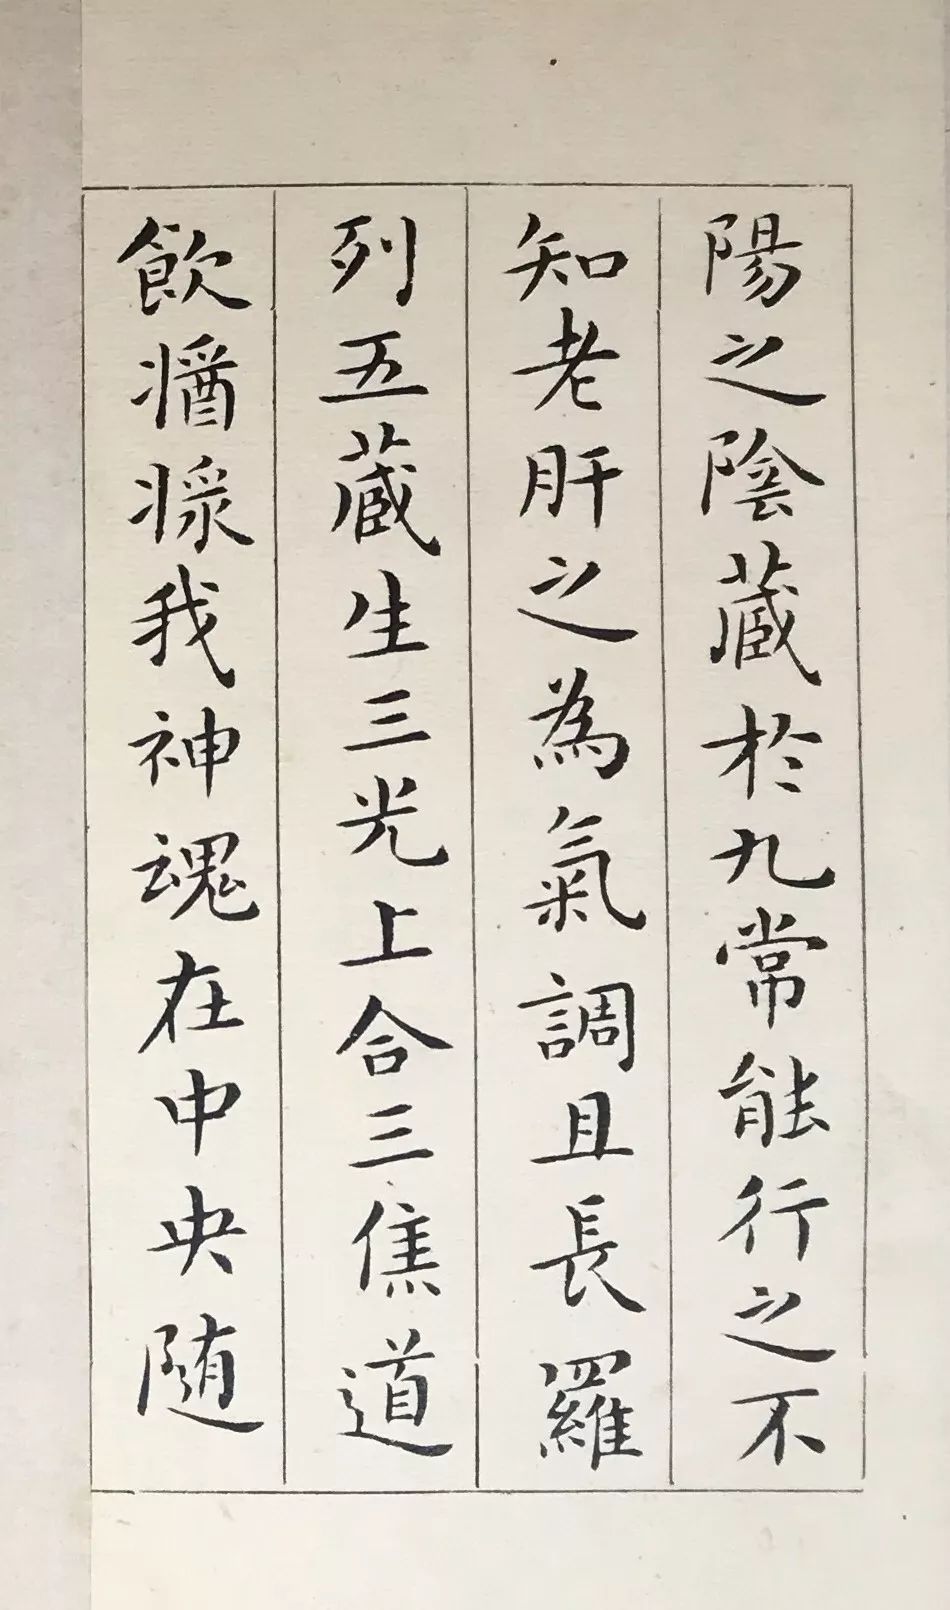 陽之陰藏於九常能行之不
知老肝之為氣調且長羅
列五藏生三光上合三焦道
飲醬漿我神魂在中央随